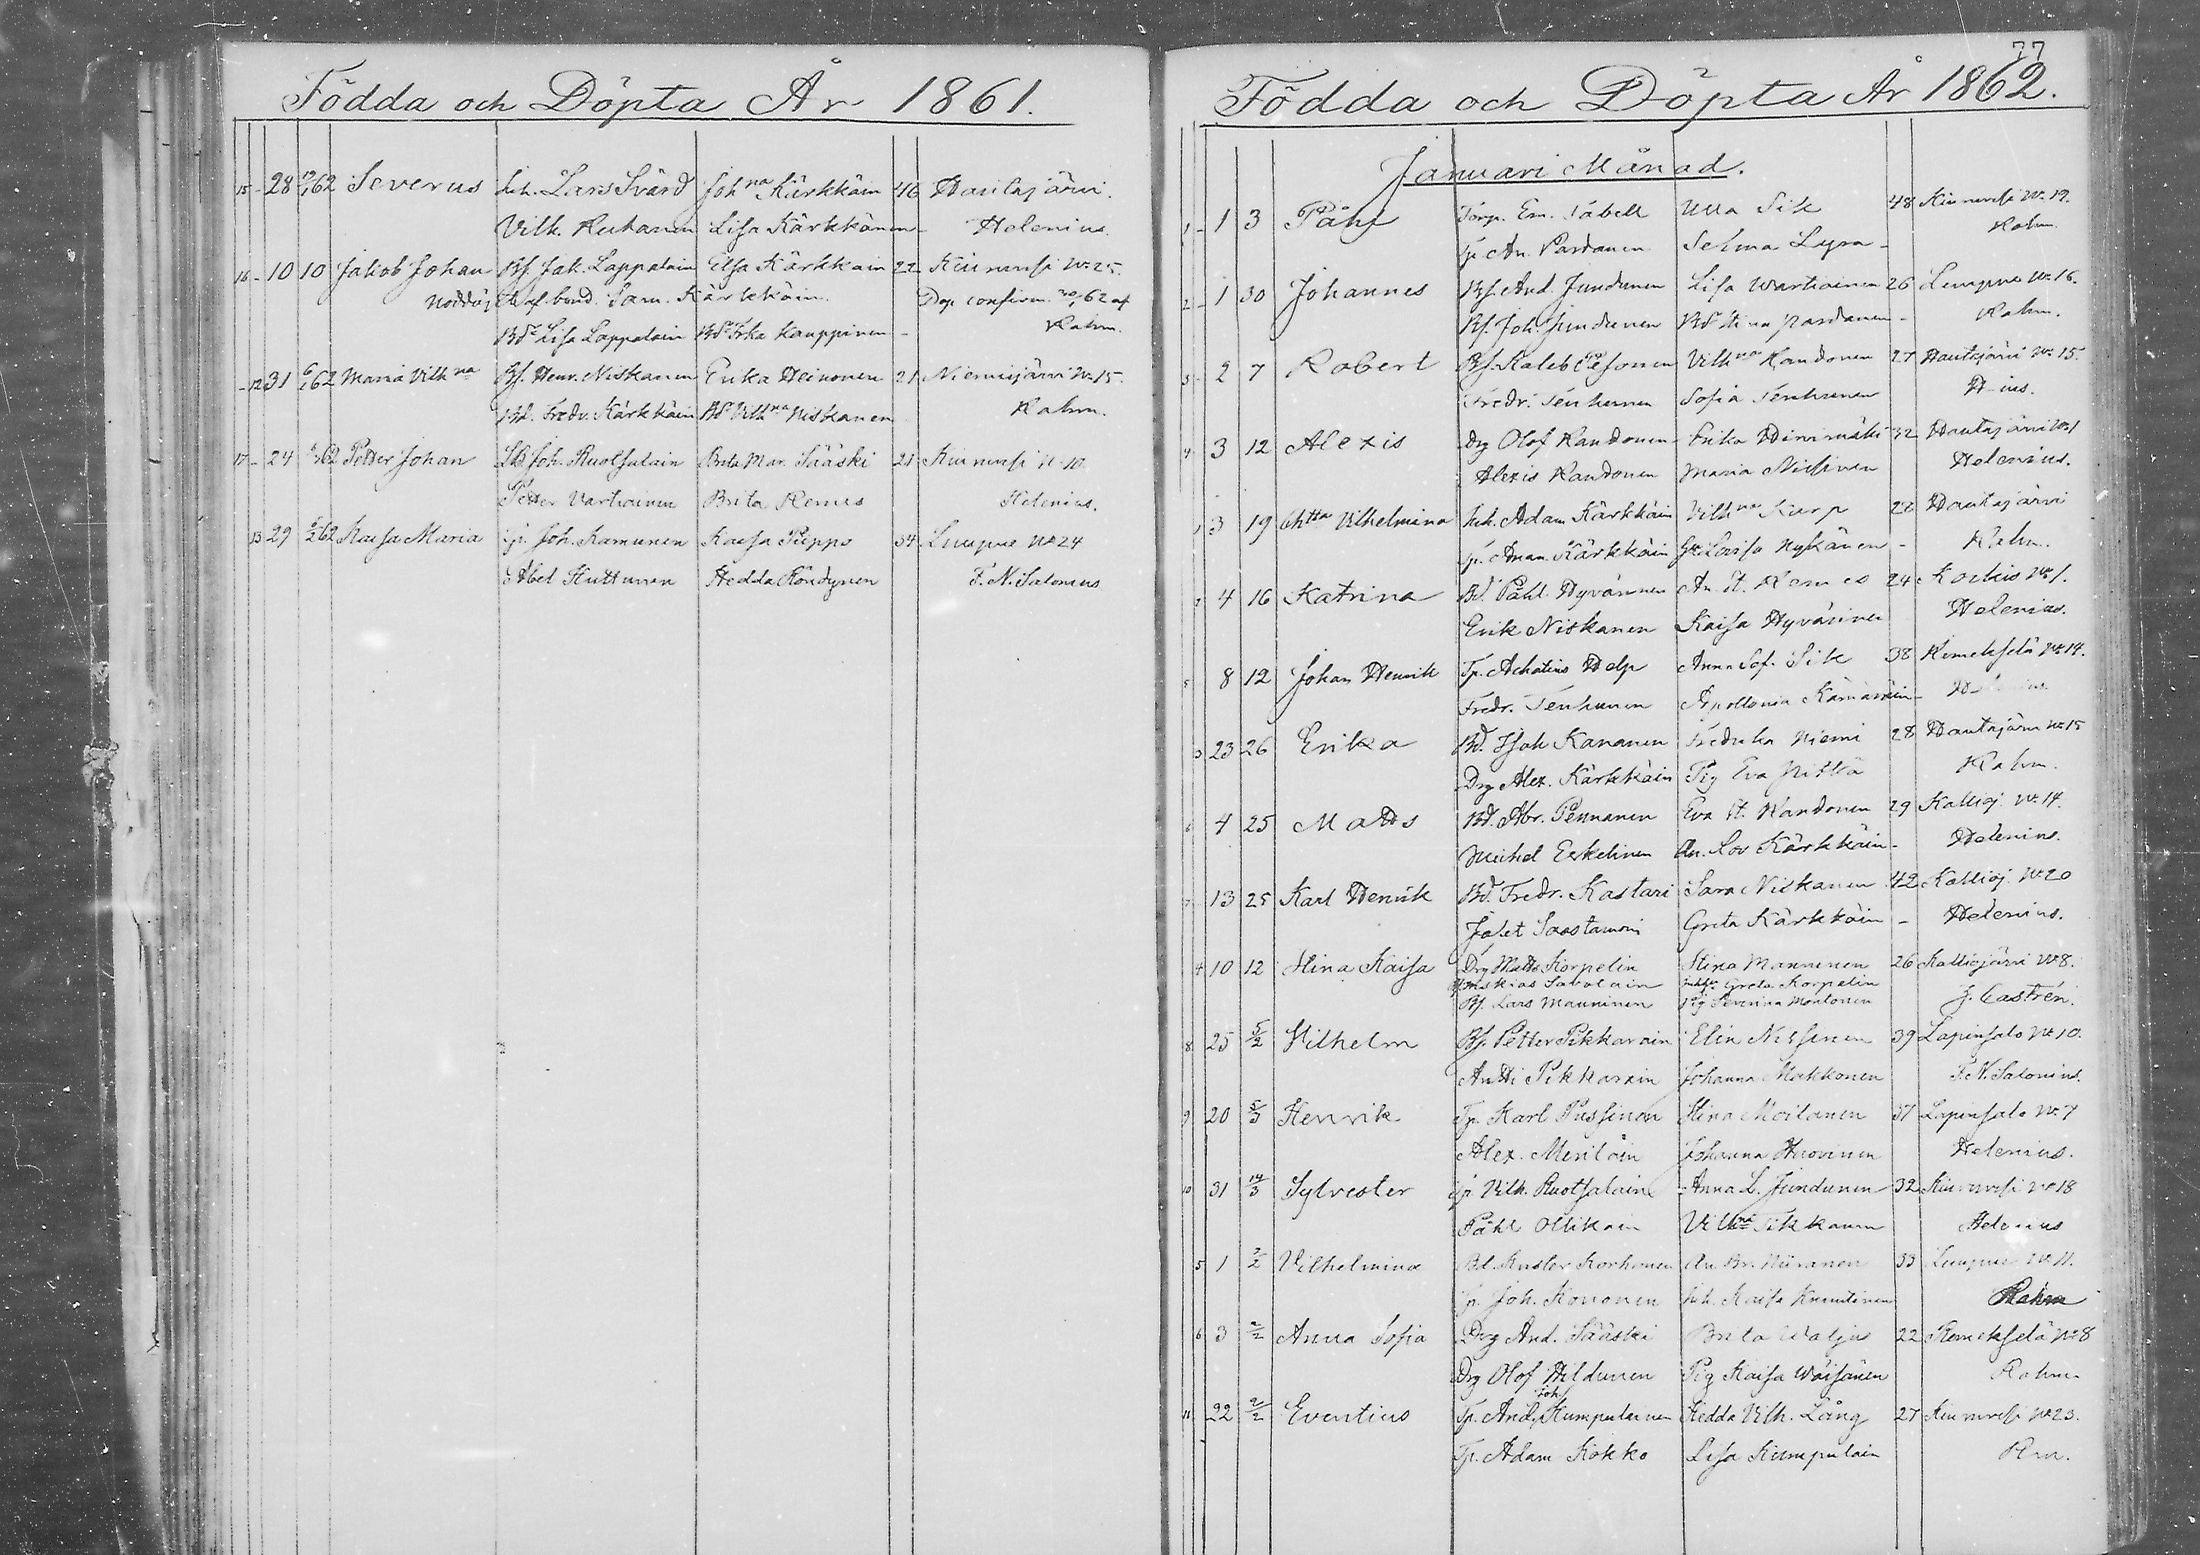 Födda och Döpta År 1861.
15 - 28 12/1 62 Severus Inh. Lars Svärd Joh:na Kärkkäin 46 Hautajärvi.
Vilh. Lisa Kärkkänen - Helenius.
16 - 10 10 Jakob Johan Bs. Jak. Lappalain Elsa Kärkkäin 22 Kiuruvesi No 25.
Nöddöpt af bond. Sam. Kärkkäin. Dop confirm. 62 af
Bde Lisa Lappalain Bde Erka Kauppinen - Rahm.
- 12 31 6/1 62 Maria Vilh:na Bs. Henr. Niskanen Erika Heinonen 21 Niemisjärvi No 15.
Bd. Fredr. Kärkkäin Bd Vilh:na Niskanen Rahm.
17 - 24 62 Petter Johan Joh. Ruotsalain Brita Mar. Sääski 21 Kiuruvesi N. 10.
Petter Vartiainen Brita Remes Helenius.
13 29 62 Kaisa Maria Tp. Joh. Kamunen Kaisa Piippo 34 Luupue No 24
Abel Huttunen Hedda Köndynen F. N. Salonius
77
Födda och Döpta År 1862.
Januari Månad.
1 - 1 3 Påhl Torp. Em. Tabell Ulla Sik 48 Kiuruvesi No 19.
Tp. An. Pardanen Selma Lyra - Rahm.
2 - 1 30 Johannes Bs. And. Jundunen Lisa Wartiainen 26 Luupue No 16.
Bs. Joh. Jundunen Bd Stina Pardanen - Rahm.
3 - 2 7 Robert Bs. Kaleb Vilh:na Kandonen 27 Hautajärvi No 15.
Fredr. Tenhunen Sofia Tenhunen H-ius.
4 3 12 Alexis Drg Olof Kandonen Erika Hirvimäki 32 Hautajärvi No 1
Alexis Kandonen Maria Nissinen Helenius.
1 3 19 Ch:tta Vilhelmina Inh. Adam Kärkkäin Vilh:na Karp 22 Hautajärvi
Tp. Anan. Kärkkäin Lovisa Nykänen - Rahm.
2 4 16 Katrina Bd. Påhl Hyvännen An. St. Remes 24 Koskis No 1.
Erik Niskanen Kaisa Hyvärinen Helenius.
5 8 12 Johan Henrik Tp. Achatius Help Anna Sof. Sik 38 Remekselä No 14.
Fredr. Tenhunen Apollonia Kämäräin -
3 23 26 Erika Bd. Isak Kananen Fredrika Niemi 28 Hautajärvi No 15
Drg Alex. Kärkkäin Pig Eva Rahm.
6 4 25 Matts Bd. Abr. Pennanen Eva St. Kandonen 29 Kallioj. No 14.
Michel Eskelinen An. Lov Kärkkäin - Helenius.
7 13 25 Karl Henrik Bd. Fredr. Kastari Sara Niskanen 42 Kallioj. No 20
Saastamoin Greta Kärkkäin - Helenius.
4 10 12 Stina Kaisa Drg Matts Korpelin Stina Manninen 26 Kalliojärvi No 8.
Savolain Greta Korpelin
Bs. Lars Manninen Pig Severina Montonen J. Castrén.
8 25 5/2 Vilhelm Bs. Petter Pikkarain Elin Nissinen 39 Lapinsalo No 10.
Antti Pikkarain Johanna Makkonen F. N. Salonius.
9 20 5/3 Henrik Tp. Karl Pussinen Stina Moilanen 37 Lapinsalo No 7
Alex. Meriläin Johanna Huovinen Helenius.
10 31 14/3 Sylvester Tp. Vilh. Ruotsalain Anna L. Jundunen 32 Kiuruvesi No 18
Påhl Ollikain Vilh:na Tikkanen Helenius
5 1 2/2 Vilhelmina Bd. Kustor Korhonen An. Br. Niiranen 33 Luupue No 11.
Tp. Joh. Kononen Inh. Kaisa Rahm
6 3 2/2 Anna Sofia Drg And. Sääski Brita Waljus 22 Remekselä No 8
Drg Olof Hildunen Pig Kaisa Wäisänen Rahm
11 22 2/2 Eventius Tp. And. Joh. Kumpulainen Hedda Vilh. Lång 27 Kiuruvesi No 23.
Tp. Adam Kokko Lisa Kumpulain Rm.